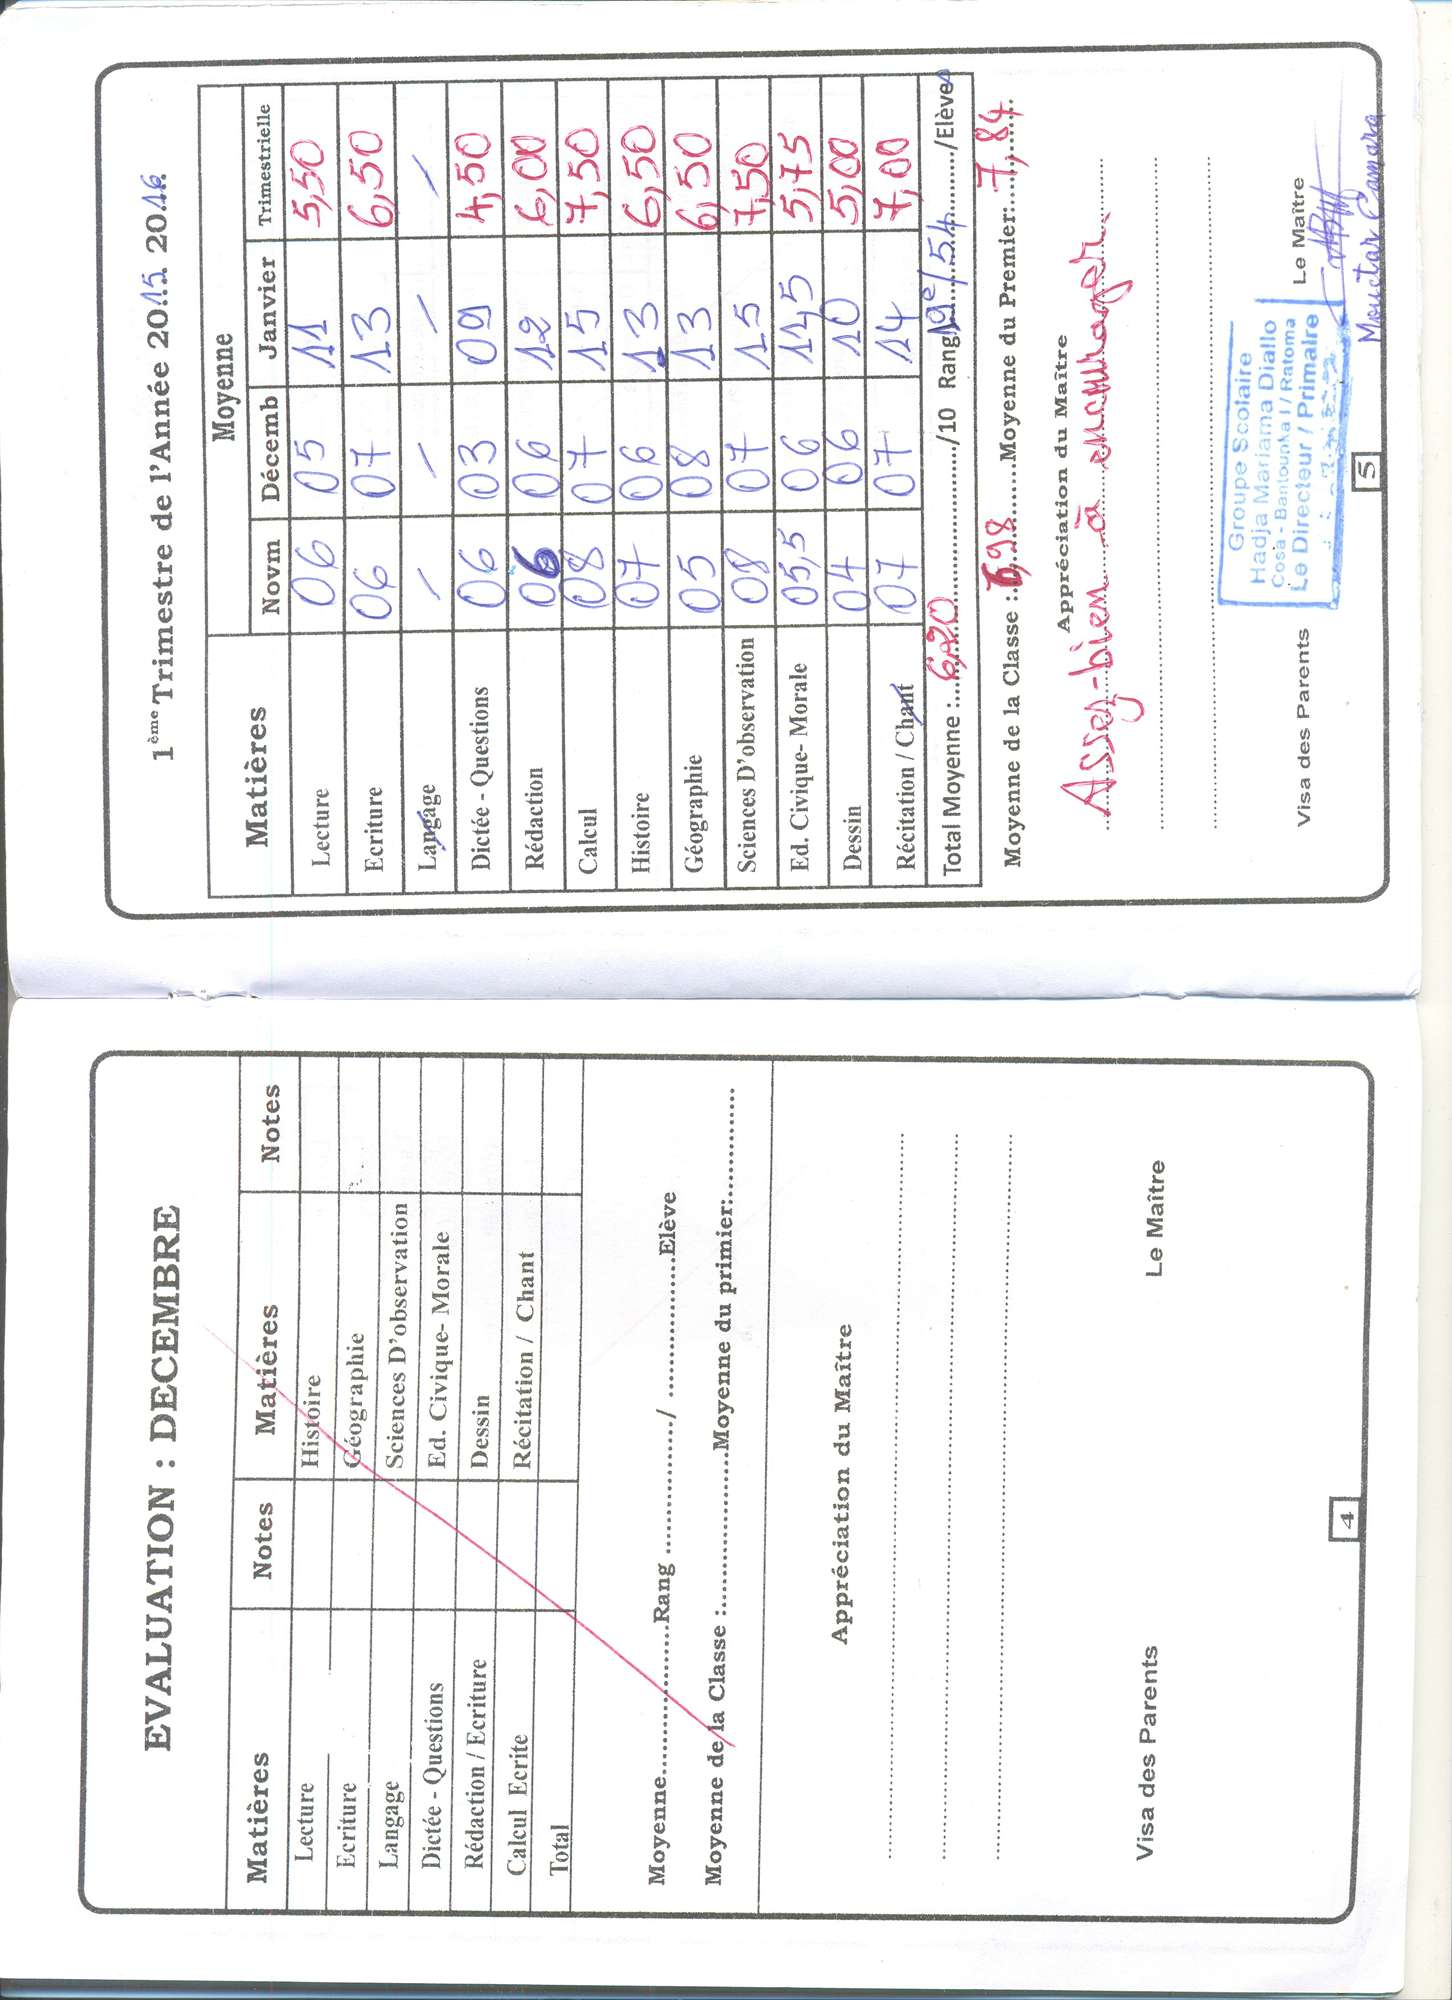 EVALUATION : DECEMBRE
Matières Notes Matières Notes
Lecture Histoire
Ecriture Géographie
Langage Sciences D'observation
Dictée - Questions Ed. Civique- Morale
Rédaction / Ecriture Dessin
Calcul Ecrite Récitation / Chant
Total
Moyenne....................Rang ..................../ ....................Elève
Moyenne de la Classe :....................Moyenne du primier:....................
Appréciation du Maître
Visa des Parents Le Maître
4
1ème Trimestre de l'Année 2015 2016
Matières Moyenne
Novm Décemb Janvier Trimestrielle
Lecture 06 05 11 5,50
Ecriture 06 07 13 6,50
Langage / / / /
Dictée - Questions 06 03 09 4,50
Rédaction 06 06 12 6,00
Calcul 08 07 15 7,50
Histoire 07 06 13 6,50
Géographie 05 08 13 6,50
Sciences D'observation 08 07 15 7,50
Ed. Civique- Morale 05,5 06 11,5 5,75
Dessin 04 06 10 5,00
Récitation / Chant 07 07 14 7,00
Total Moyenne : 6,20 /10 Rang 19e/54 /Elèves
Moyenne de la Classe : 5,98 Moyenne du Premier: 7,84
Appréciation du Maître
Assez-bien à encourager.
Visa des Parents Le Maître
Groupe Scolaire
Hadja Mariama Diallo
Cosa - Bantounka I / Ratoma
Le Directeur / Primaire
Mouctar Camara
5